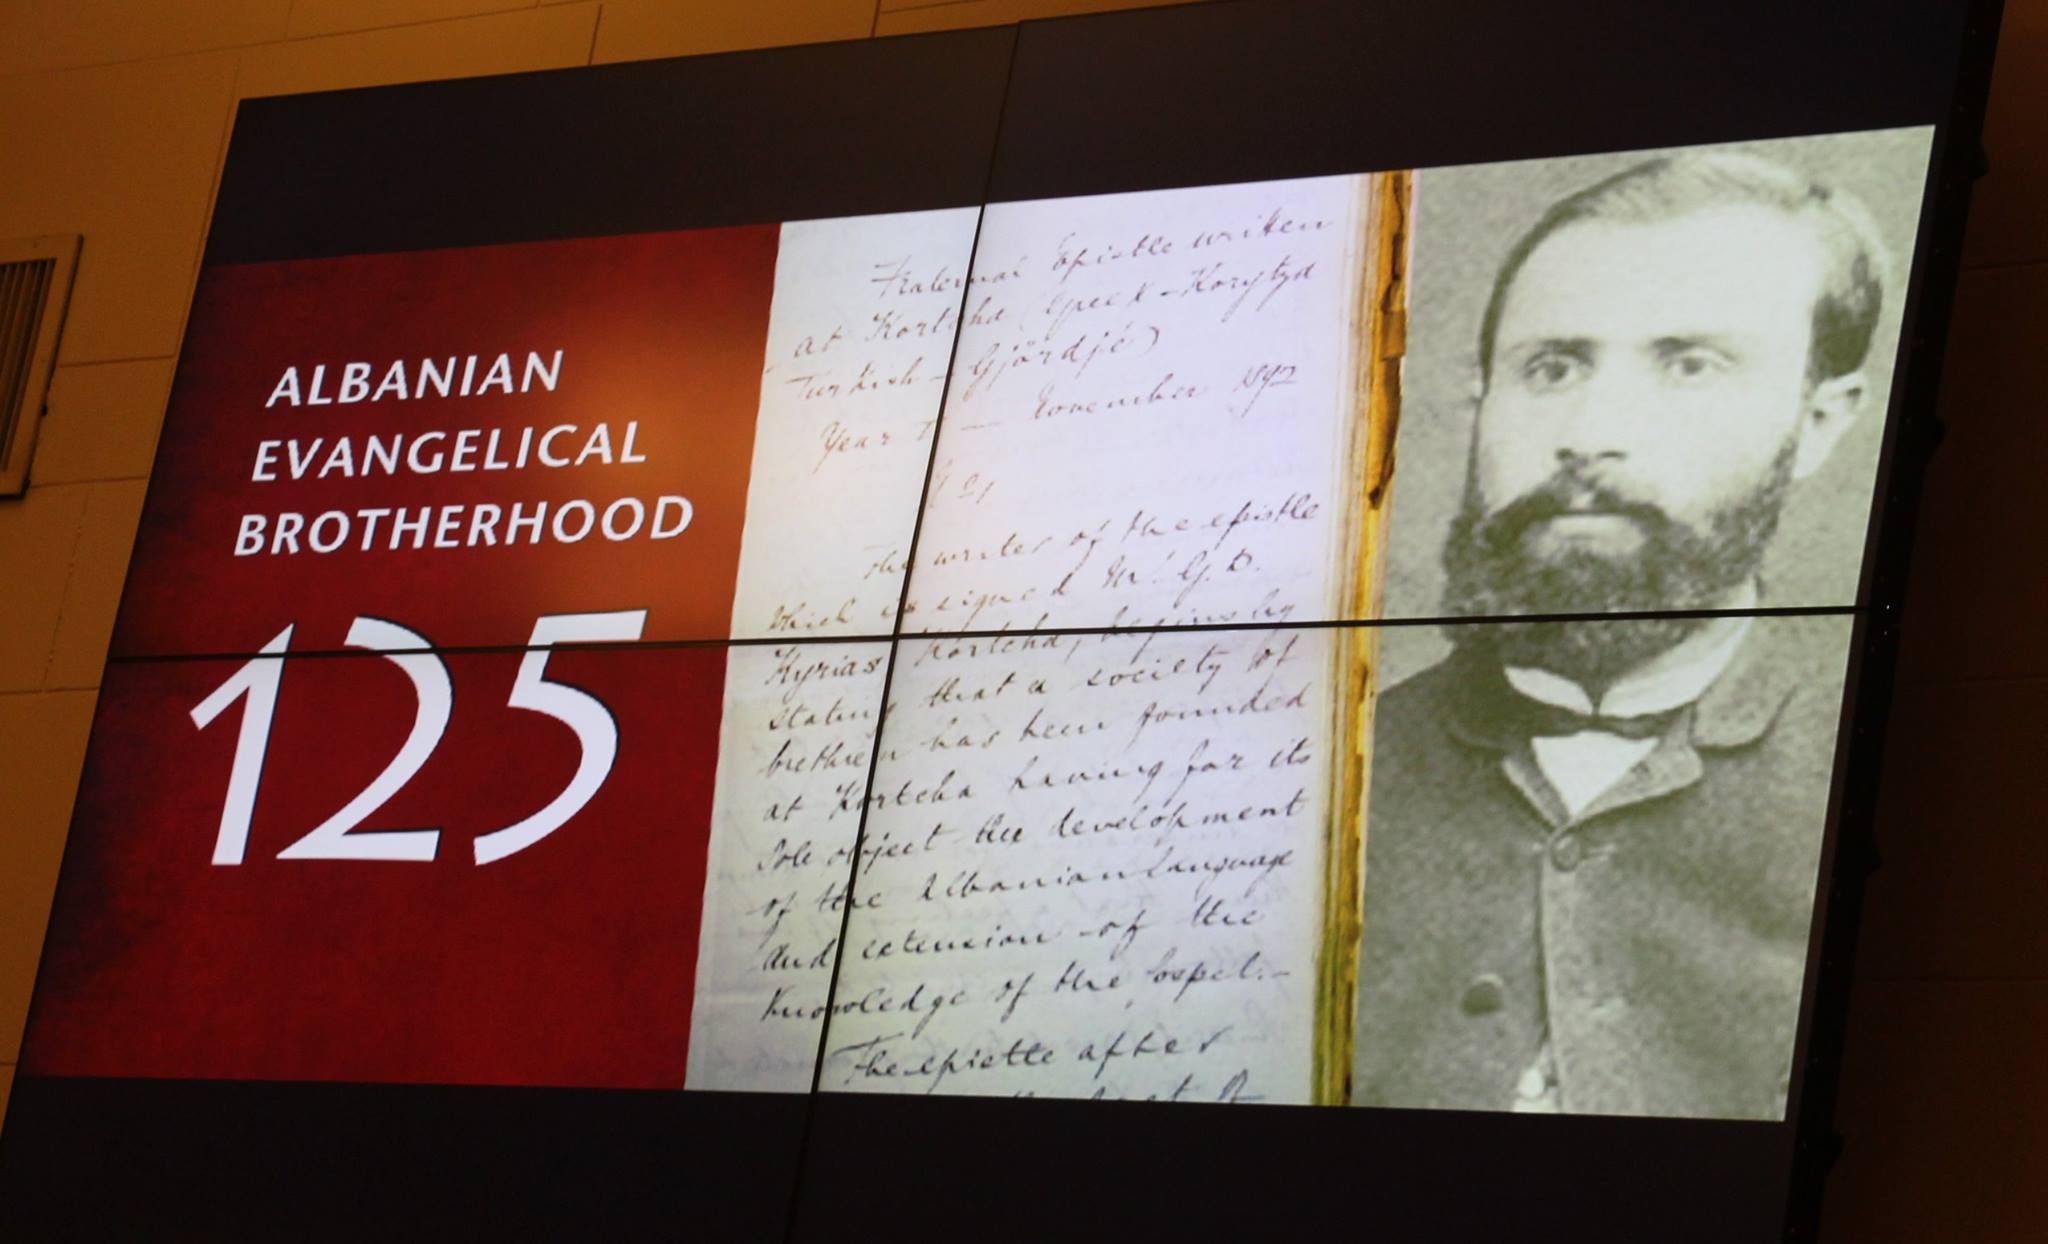 ALBANIAN
EVANGELICAL
BROTHERHOOD
125
Fraternal Epistle written
at Kortcha (Greek - Korytza
Turkish - Gjördjé)
Year I — November 1892
The writer of the epistle
which is signed Mr. G. D.
Kyrias Kortcha, begins by
stating that a society of
brethren has been founded
at Kortcha having for its
sole object the development
of the Albanian language
and extension of the
knowledge of the Gospel.-
The epistle after